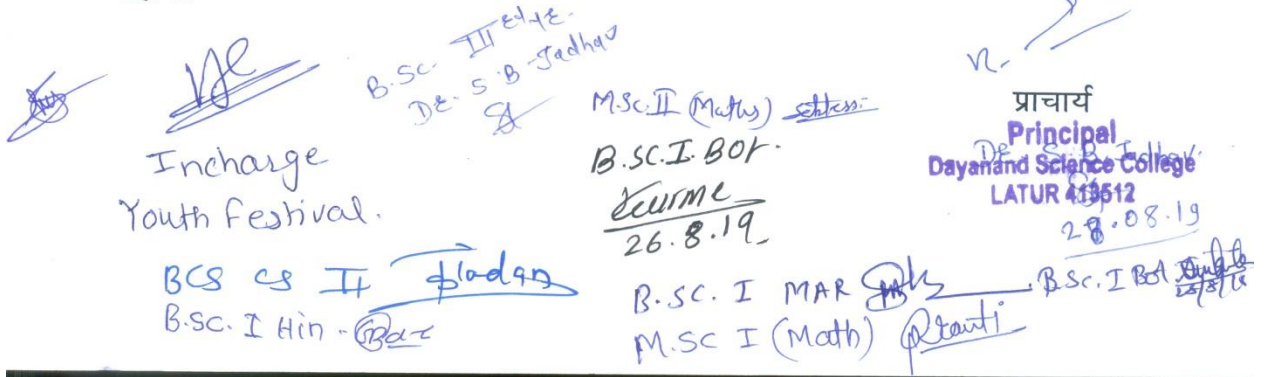 B.Sc. III
Dr. S.B Jadhav
Incharge
Youth Festival.
M.Sc.II (Maths)
B.SC.I.BOT.
26.8.19
प्राचार्य
Principal
Dr S.B. Jadhav.
Dayanand Science College
LATUR 413512
28.08.19
BCS CS II
B.Sc. I Hin -
B.SC. I MAR
B.Sc. I Bot
M.SC I (Math)